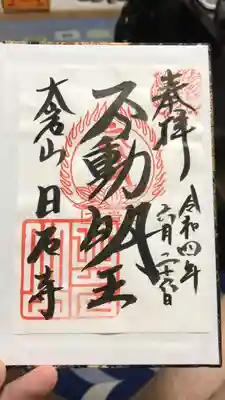 奉拝
令和四年
六月二十六日
不動明王
大岩山
日石寺